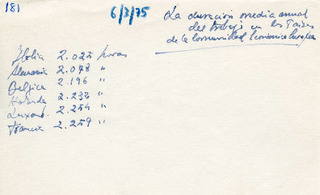 181
6/3/75
La duración media anual
del trabajo en los Países
de la Comunidad Económica Europea
Italia 2.025 horas
Alemania 2.078 "
Belgica 2.196 "
Holanda 2.233 "
Luxemb. 2.254 "
Francia 2.259 "